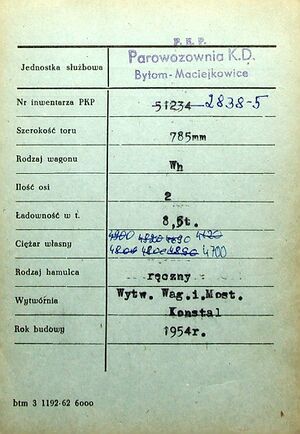 P. K. P.
Parowozownia K.D.
Jednostka służbowa
Bytom-Maciejkowice
Nr inwentarza PKP 51234 2838-5
Szerokość toru 785mm
Rodzaj wagonu Wh
Ilość osi 2
Ładowność w t. 8,5t.
4900 4820 4690 4120
Ciężar własny 4700
Rodzaj hamulca ręczny
Wytw. Wag.i.Most.
Wytwórnia
Konstal
Rok budowy 1954r.
btm 3 1192-62 6000